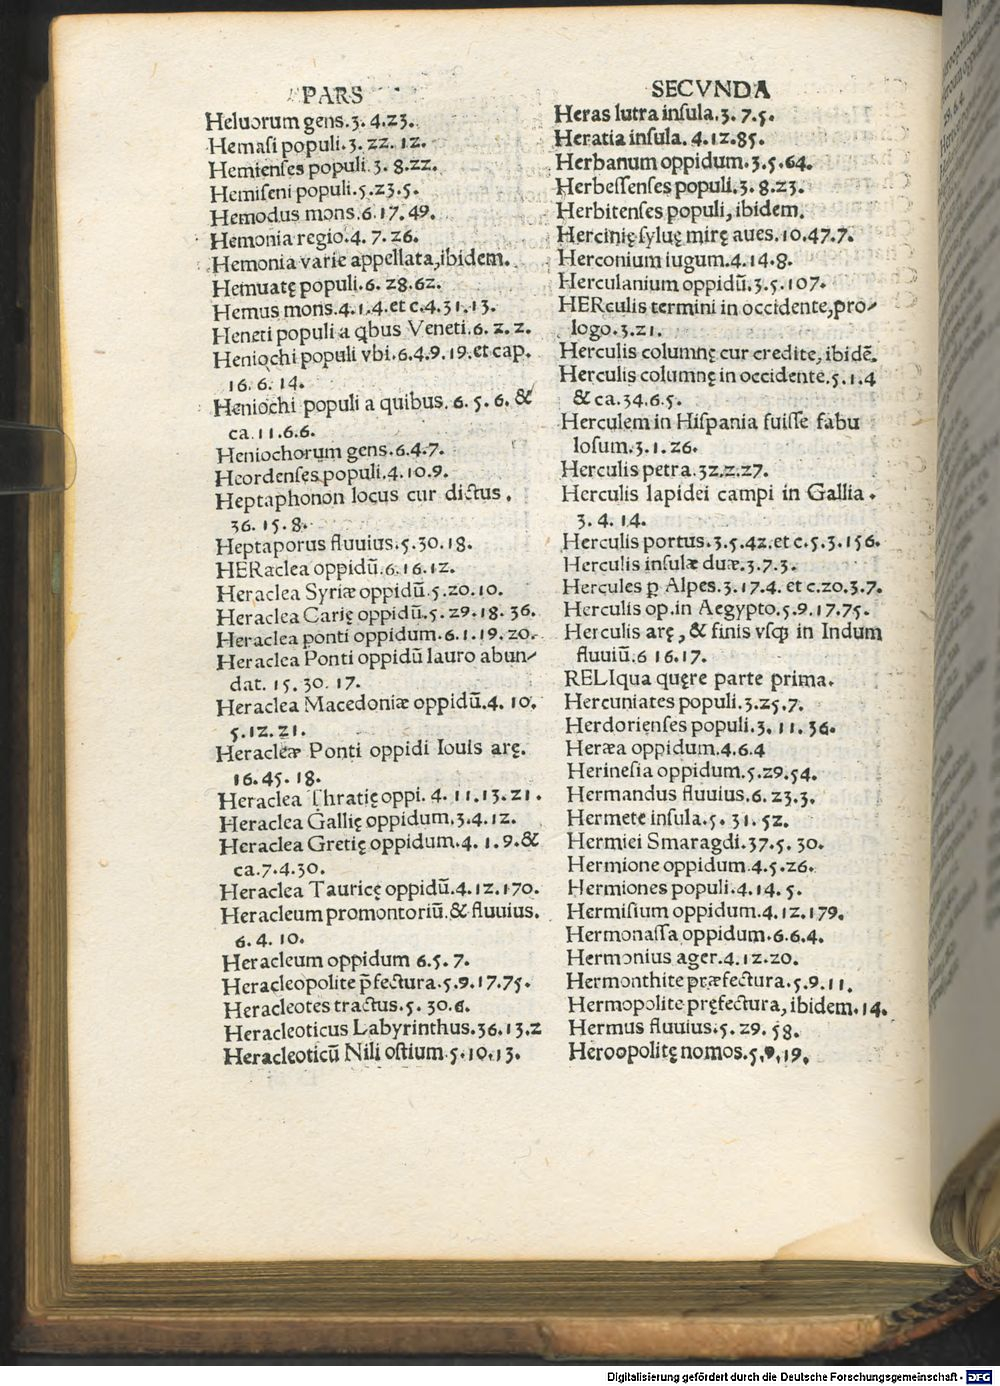 PARS
Heluorum gens.3. 4.23.
Hemaſi populi.3. 22. 12.
Hemienſes populi.3. 8.22.
Hemiſeni populi.5.23.5.
Hemodus mons.6.17.49.
Hemonia regio.4. 7. 26.
Hemonia varie appellata,ibidem.
Hemuatę populi.6. 28.62.
Hemus mons.4.1.4.et c.4.31.13.
Heneti populi a qbus Veneti.6. 2. 2.
Heniochi populi vbi.6.4.9.19.et cap.
16. 6. 14.
Heniochi populi a quibus. 6. 5. 6. &
ca.11.6.6.
Heniochorum gens.6.4.7.
Heordenſes populi.4.10.9.
Heptaphonon locus cur dictus.
36. 15. 8.
Heptaporus fluuius.5.30.18.
HERaclea oppidū.6.16.12.
Heraclea Syriæ oppidū.5.20.10.
Heraclea Carię oppidū.5.29.18.36.
Heraclea ponti oppidum.6.1.19.20.
Heraclea Ponti oppidū lauro abun⸗
dat. 15. 30. 17.
Heraclea Macedoniæ oppidū.4. 10.
5.12.21.
Heracleæ Ponti oppidi Iouis arę.
16.45.18.
Heraclea Thratię oppi. 4. 11.13.21.
Heraclea Gallię oppidum.3.4.12.
Heraclea Gretię oppidum.4. 1.9.&
ca.7.4.30.
Heraclea Tauricę oppidū.4.12.170.
Heracleum promontoriū.& fluuius.
6. 4. 10.
Heracleum oppidum 6.5.7.
Heracleopolite p̄fectura.5.9.17.75.
Heracleotes tractus.5. 30.6.
Heracleoticus Labyrinthus.36.13.2
Heracleoticū Nili oſtium.5.10.13.
SECVNDA
Heras lutra inſula.3. 7.5.
Heratia inſula. 4.12.85.
Herbanum oppidum.3.5.64.
Herbeſſenſes populi.3. 8.23.
Herbitenſes populi, ibidem.
Hercinię ſyluę mirę aues.10.47.7.
Herconium iugum.4.14.8.
Herculanium oppidū.3.5.107.
HERculis termini in occidente,pro⸗
logo.3.21.
Herculis columnę cur credite, ibidē.
Herculis columnę in occidente.5.1.4
& ca.34.6.5.
Herculem in Hiſpania fuiſſe fabu
loſum.3.1.26.
Herculis petra.32.2.27.
Herculis lapidei campi in Gallia.
3. 4. 14.
Herculis portus.3.5.42.et c.5.3.156.
Herculis inſulæ duæ.3.7.3.
Hercules p̱ Alpes.3.17.4. et c.20.3.7.
Herculis op.in Aegypto.5.9.17.75.
Herculis arę, & finis vſqꝫ in Indum
fluuiū.6 16.17.
RELIqua quęre parte prima.
Hercuniates populi.3.25.7.
Herdorienſes populi.3. 11. 36.
Heræa oppidum.4.6.4
Herineſia oppidum.5.29.54.
Hermandus fluuius.6. 23.3.
Hermete inſula.5. 31. 52.
Hermiei Smaragdi.37.5. 30.
Hermione oppidum.4.5.26.
Hermiones populi.4.14. 5.
Hermiſium oppidum.4.12.179.
Hermonaſſa oppidum.6.6.4.
Hermonius ager.4.12.20.
Hermonthite præfectura.5.9.11.
Hermopolite pręfectura, ibidem.14.
Hermus fluuius.5. 29. 58.
Heroopolitę nomos.5.9.19.
Digitalisierung gefördert durch die Deutsche Forschungsgemeinschaft - DFG